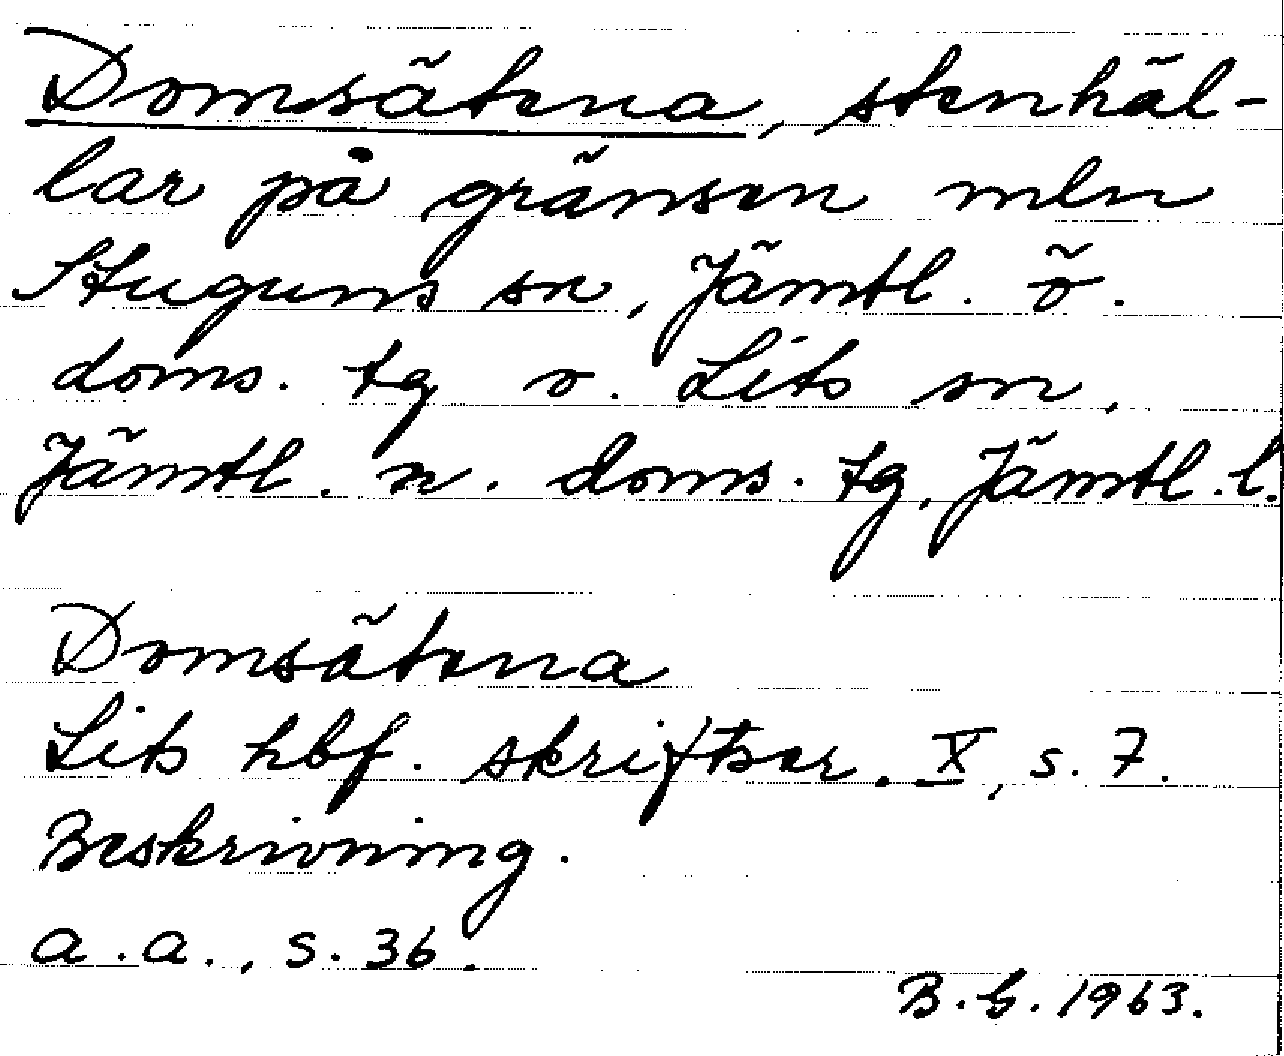 Domsätena, stenhäl-
lar på gränsen mln
Stuguns sn, Jämtl. ö.
doms. tg o. Lits sn,
Jämtl. n. doms. tg, Jämtl. l.
Domsätena
Lits hbf. skriftser. X, s. 7.
Beskrivning.
a.a., s. 36.
B.G. 1963.